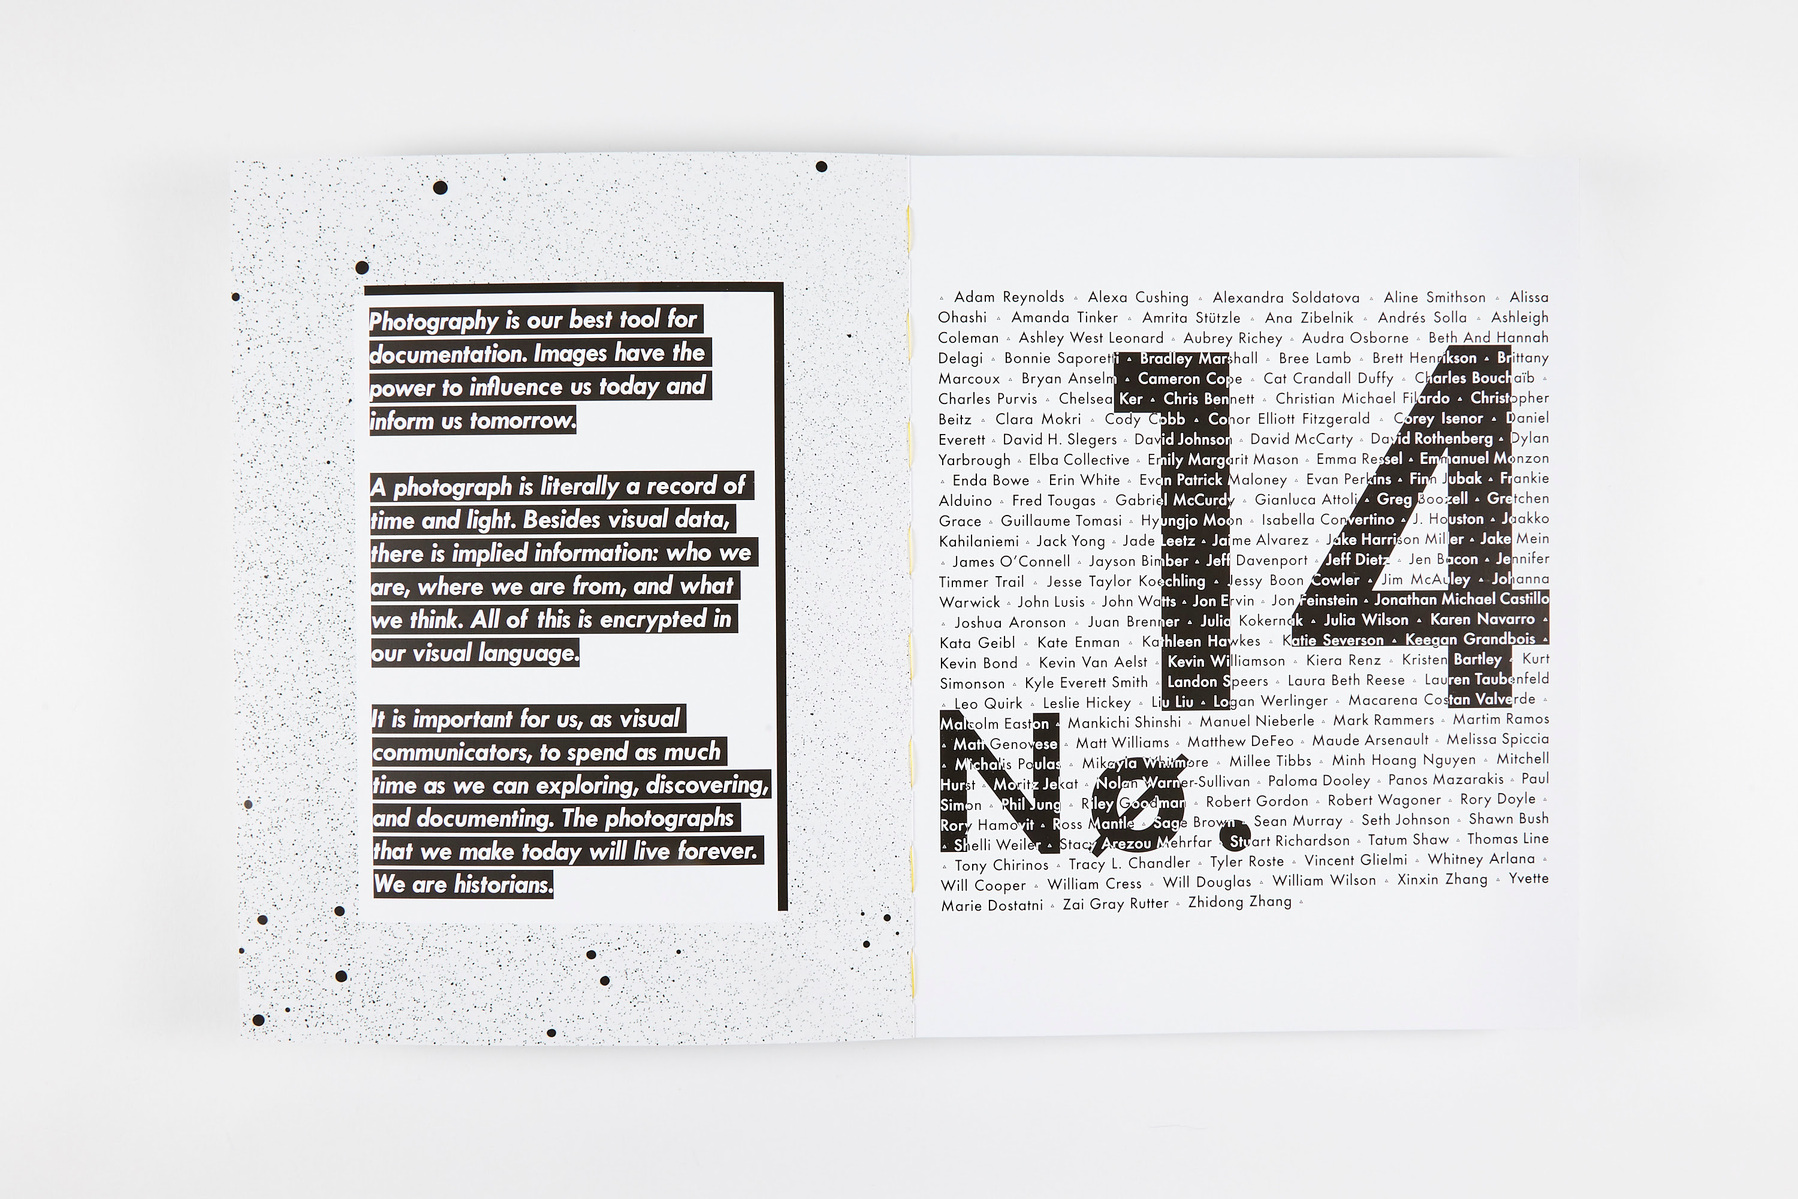 Photography is our best tool for
documentation. Images have the
power to influence us today and
inform us tomorrow.
A photograph is literally a record of
time and light. Besides visual data,
there is implied information: who we
are, where we are from, and what
we think. All of this is encrypted in
our visual language.
It is important for us, as visual
communicators, to spend as much
time as we can exploring, discovering,
and documenting. The photographs
that we make today will live forever.
We are historians.
▵ Adam Reynolds ▵ Alexa Cushing ▵ Alexandra Soldatova ▵ Aline Smithson ▵ Alissa
Ohashi ▵ Amanda Tinker ▵ Amrita Stützle ▵ Ana Zibelnik ▵ Andrés Solla ▵ Ashleigh
Coleman ▵ Ashley West Leonard ▵ Aubrey Richey ▵ Audra Osborne ▵ Beth And Hannah
Delagi ▵ Bonnie Saporetti ▵ Bradley Marshall ▵ Bree Lamb ▵ Brett Henrikson ▵ Brittany
Marcoux ▵ Bryan Anselm ▵ Cameron Cope ▵ Cat Crandall Duffy ▵ Charles Bouchaïb ▵
Charles Purvis ▵ Chelsea Ker ▵ Chris Bennett ▵ Christian Michael Filardo ▵ Christopher
Beitz ▵ Clara Mokri ▵ Cody Cobb ▵ Conor Elliott Fitzgerald ▵ Corey Isenor ▵ Daniel
Everett ▵ David H. Slegers ▵ David Johnson ▵ David McCarty ▵ David Rothenberg ▵ Dylan
Yarbrough ▵ Elba Collective ▵ Emily Margarit Mason ▵ Emma Ressel ▵ Emmanuel Monzon
▵ Enda Bowe ▵ Erin White ▵ Evan Patrick Maloney ▵ Evan Perkins ▵ Finn Jubak ▵ Frankie
Alduino ▵ Fred Tougas ▵ Gabriel McCurdy ▵ Gianluca Attoli ▵ Greg Boozell ▵ Gretchen
Grace ▵ Guillaume Tomasi ▵ Hyungjo Moon ▵ Isabella Convertino ▵ J. Houston ▵ Jaakko
Kahilaniemi ▵ Jack Yong ▵ Jade Leetz ▵ Jaime Alvarez ▵ Jake Harrison Miller ▵ Jake Mein
▵ James O’Connell ▵ Jayson Bimber ▵ Jeff Davenport ▵ Jeff Dietz ▵ Jen Bacon ▵ Jennifer
Timmer Trail ▵ Jesse Taylor Koechling ▵ Jessy Boon Cowler ▵ Jim McAuley ▵ Johanna
Warwick ▵ John Lusis ▵ John Watts ▵ Jon Ervin ▵ Jon Feinstein ▵ Jonathan Michael Castillo
▵ Joshua Aronson ▵ Juan Brenner ▵ Julia Kokernak ▵ Julia Wilson ▵ Karen Navarro ▵
Kata Geibl ▵ Kate Enman ▵ Kathleen Hawkes ▵ Katie Severson ▵ Keegan Grandbois ▵
Kevin Bond ▵ Kevin Van Aelst ▵ Kevin Williamson ▵ Kiera Renz ▵ Kristen Bartley ▵ Kurt
Simonson ▵ Kyle Everett Smith ▵ Landon Speers ▵ Laura Beth Reese ▵ Lauren Taubenfeld
▵ Leo Quirk ▵ Leslie Hickey ▵ Liu Liu ▵ Logan Werlinger ▵ Macarena Costan Valverde ▵
Malcolm Easton ▵ Mankichi Shinshi ▵ Manuel Nieberle ▵ Mark Rammers ▵ Martim Ramos
▵ Matt Genovese ▵ Matt Williams ▵ Matthew DeFeo ▵ Maude Arsenault ▵ Melissa Spiccia
▵ Michalis Poulas ▵ Mikayla Whitmore ▵ Millee Tibbs ▵ Minh Hoang Nguyen ▵ Mitchell
Hurst ▵ Moritz Jekat ▵ Nolan Warner-Sullivan ▵ Paloma Dooley ▵ Panos Mazarakis ▵ Paul
Simon ▵ Phil Jung ▵ Riley Goodman ▵ Robert Gordon ▵ Robert Wagoner ▵ Rory Doyle ▵
Rory Hamovit ▵ Ross Mantle ▵ Sage Brown ▵ Sean Murray ▵ Seth Johnson ▵ Shawn Bush
▵ Shelli Weiler ▵ Stacy Arezou Mehrfar ▵ Stuart Richardson ▵ Tatum Shaw ▵ Thomas Line
▵ Tony Chirinos ▵ Tracy L. Chandler ▵ Tyler Roste ▵ Vincent Glielmi ▵ Whitney Arlana ▵
Will Cooper ▵ William Cress ▵ Will Douglas ▵ William Wilson ▵ Xinxin Zhang ▵ Yvette
Marie Dostatni ▵ Zai Gray Rutter ▵ Zhidong Zhang ▵
14
Nø.